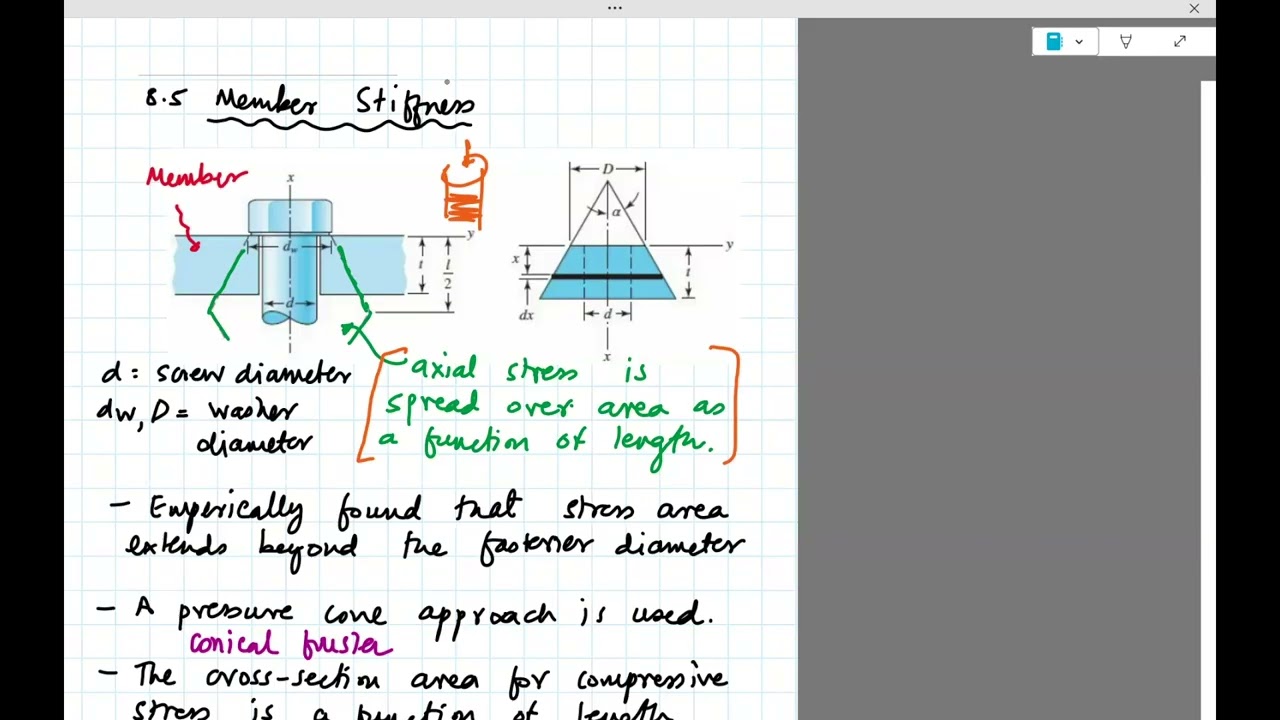 8.5 Member Stiffness
Member
x
y
dw
t
l
2
d
D
α
y
x
t
dx
d
x
d = screw diameter
dw, D = washer
diameter
axial stress is
spread over area as
a function of length.
- Emperically found that stress area
extends beyond the fastener diameter
- A pressure cone approach is used.
conical frusta
- The cross-section area for compressive
stress is a function of length